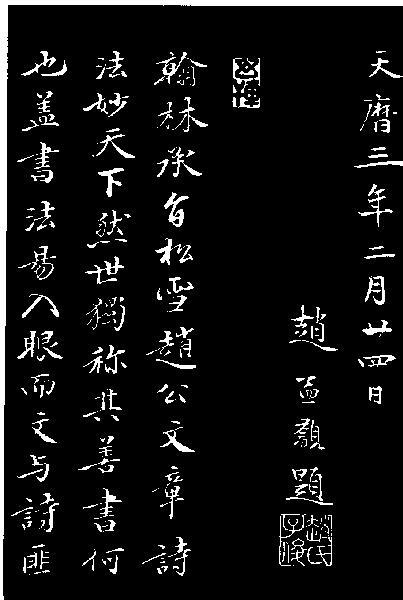 天曆三年二月廿四日
趙孟籲題
趙氏子俊
翰林承旨松雪趙公文章詩
法妙天下然世獨称其善書何
也盖書法易入眼而文与詩匪